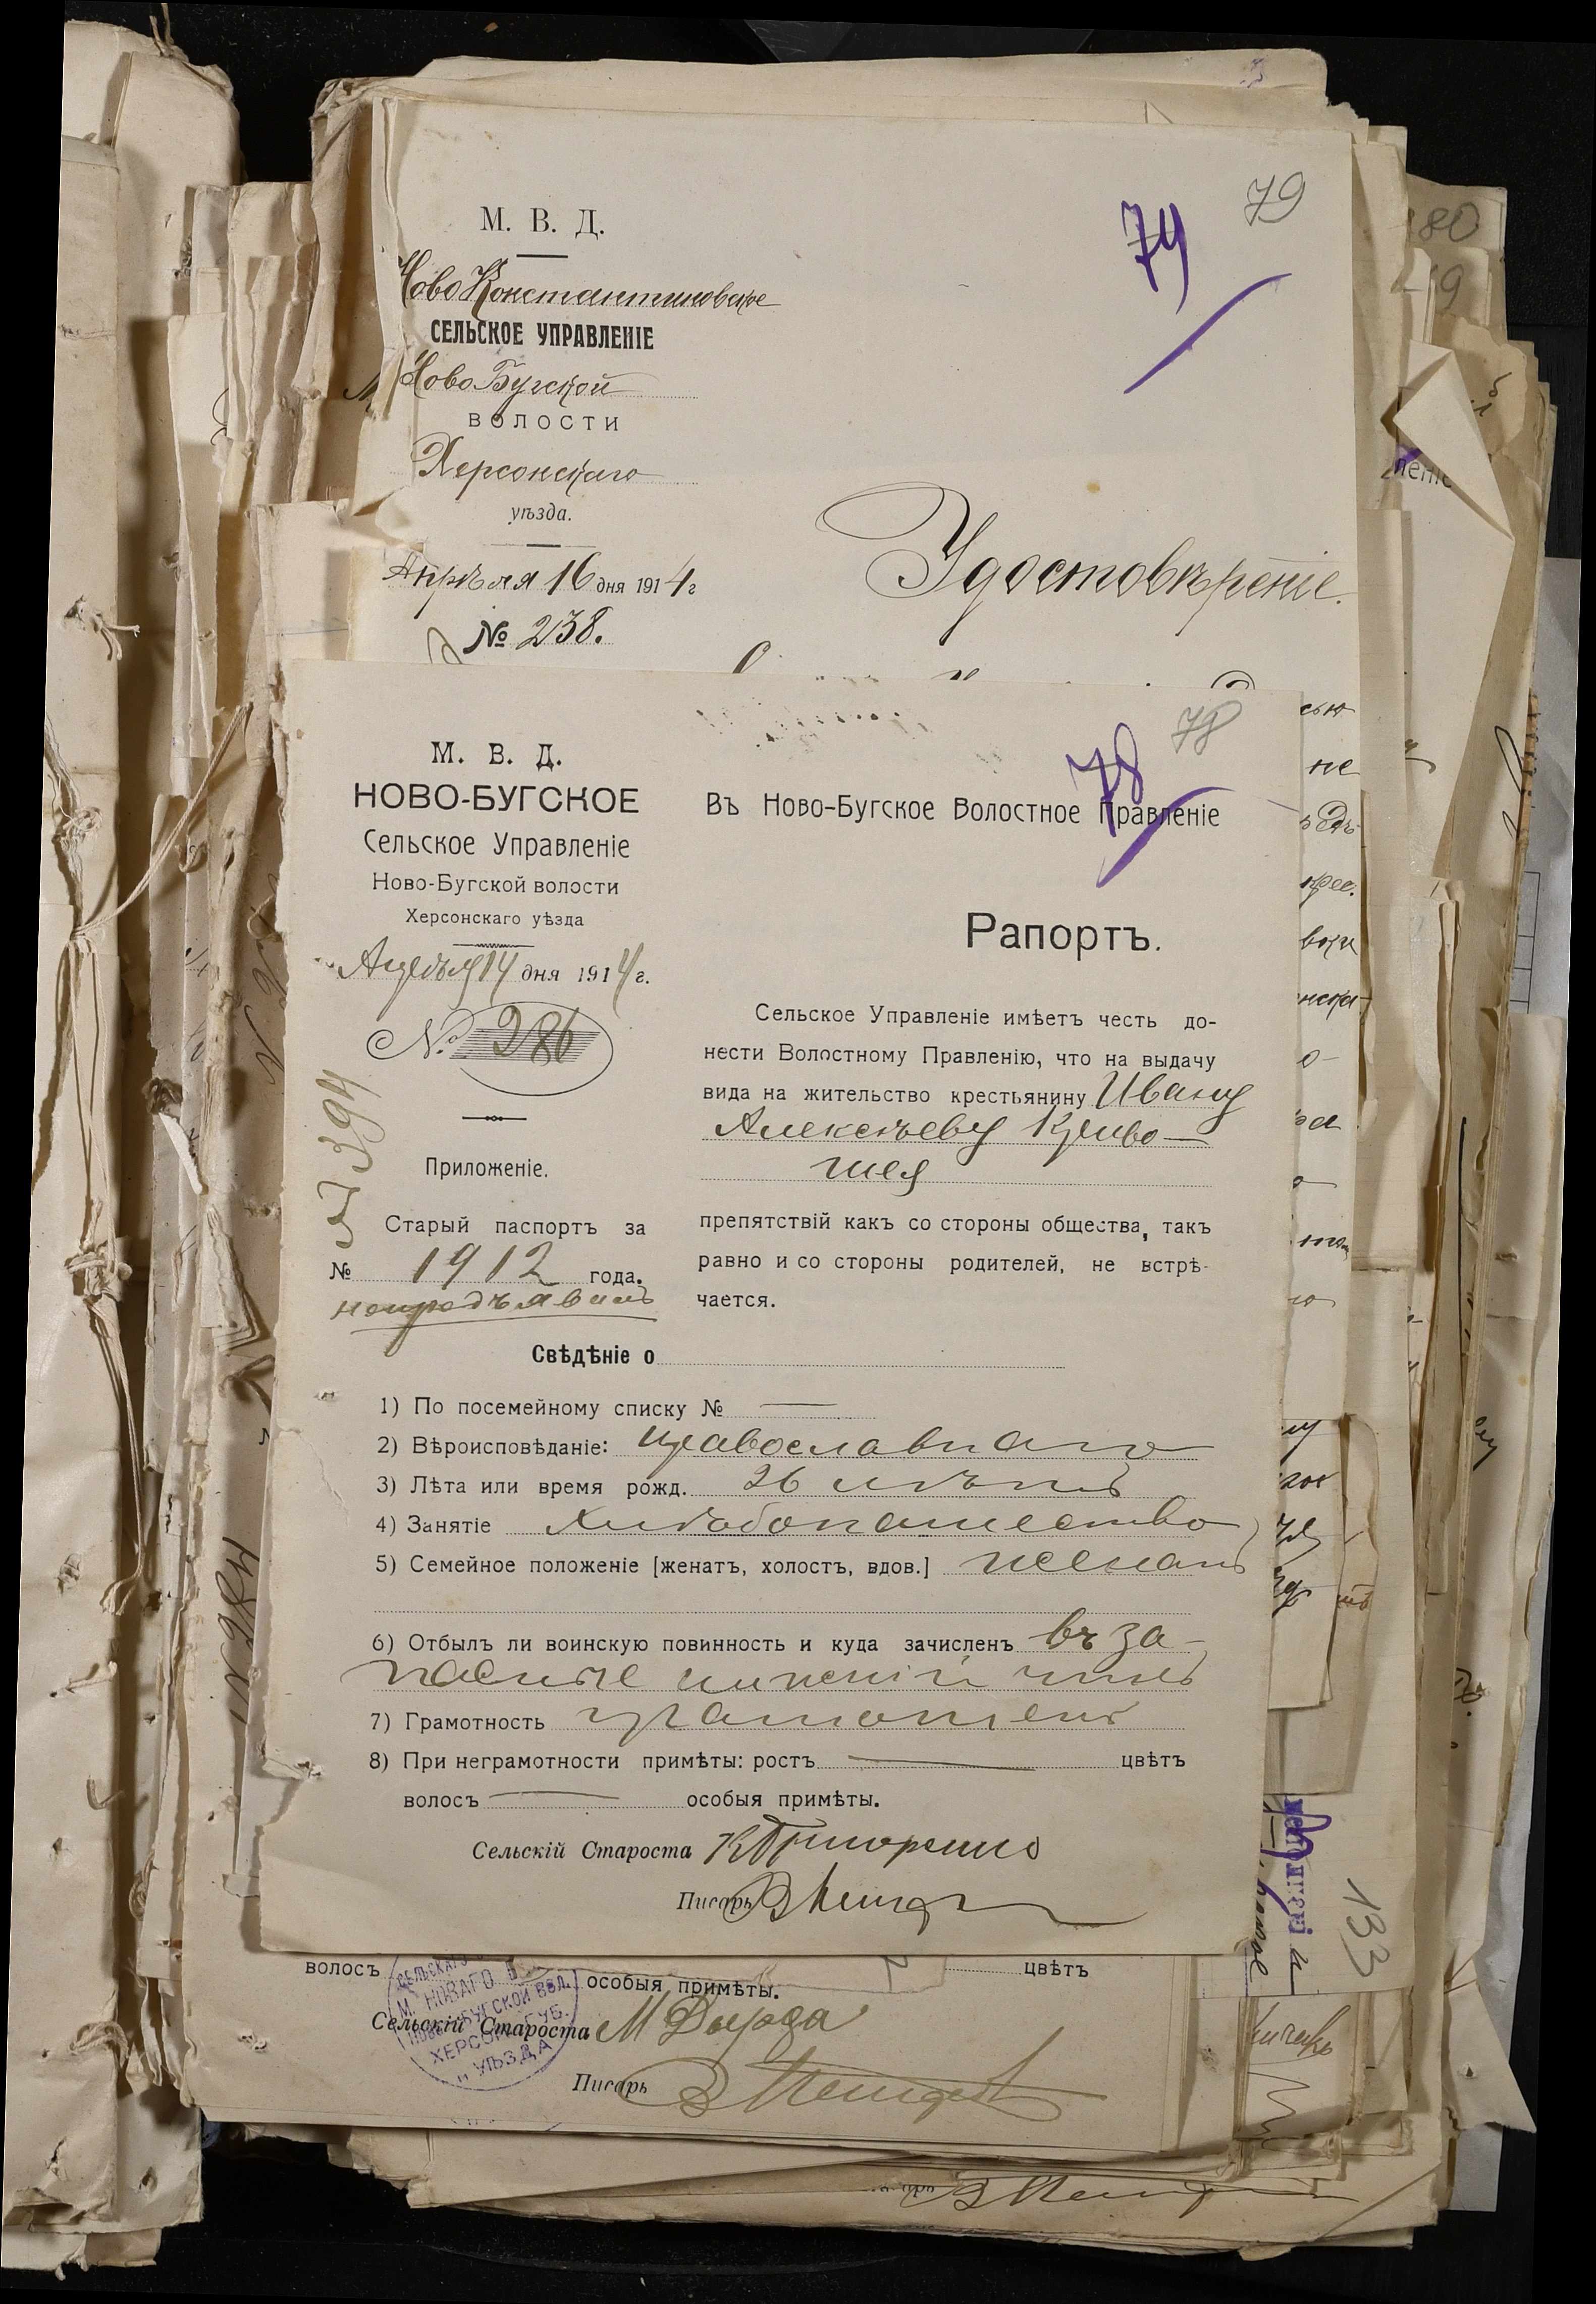 79
79
М. В. Д.
Ново Константиновское
СЕЛЬСКОЕ УПРАВЛЕНІЕ
Ново Бугской
ВОЛОСТИ
Херсонскаго
уѣзда.
Апрѣля 16 дня 1914 г
№ 238.
Удостовѣреніе.
78
78
М. В. Д.
НОВО-БУГСКОЕ
Сельское Управленіе
Ново-Бугской волости
Херсонскаго уѣзда
Апрѣля 14 дня 1914 г.
№ 286
394
Приложеніе.
Старый паспортъ за
№ 1912 года.
непредъявилъ
Въ Ново-Бугское Волостное Правленіе
Рапортъ.
Сельское Управленіе имѣетъ честь до-
нести Волостному Правленію, что на выдачу
вида на жительство крестьянину Ивану
Алексѣеву Криво-
шея
препятствій какъ со стороны общества, такъ
равно и со стороны родителей, не встрѣ-
чается.
Свѣдѣніе о
1) По посемейному списку № —
2) Вѣроисповѣданіе: православнаго
3) Лѣта или время рожд. 26 лѣтъ
4) Занятіе хлѣбопашество
5) Семейное положеніе [женатъ, холостъ, вдов.] женатъ
6) Отбылъ ли воинскую повинность и куда зачисленъ въ за-
пасные нижній чинъ
7) Грамотность грамотенъ
8) При неграмотности примѣты: ростъ — цвѣтъ
волосъ — особыя примѣты.
Сельскій Староста
Писарь
волосъ особыя примѣты. цвѣтъ
Сельскій Староста М Дырда
Писарь
НОВО-БУГСКОЙ ВОЛ.
ХЕРСОН. ГУБ.
УѢЗДА
133
80